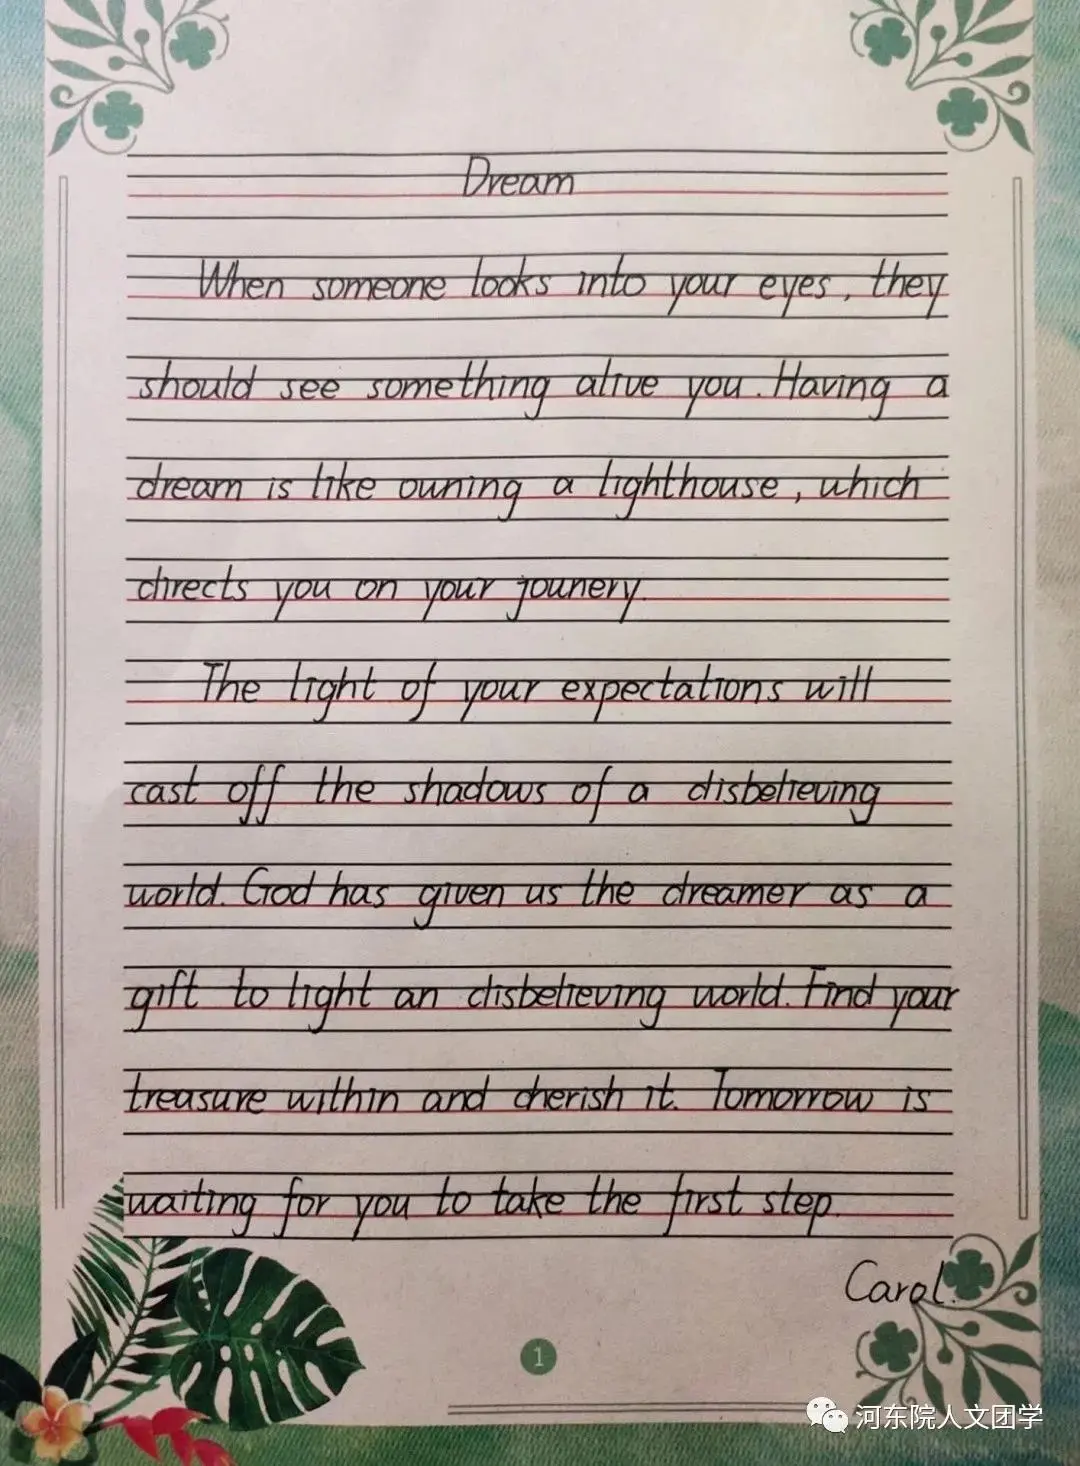 Dream
When someone looks into your eyes, they
should see something alive you. Having a
dream is like owning a lighthouse, which
directs you on your jounery.
The light of your expectations will
cast off the shadows of a disbelieving
world. God has given us the dreamer as a
gift to light an disbelieving world. Find your
treasure within and cherish it. Tomorrow is
waiting for you to take the first step.
Carol.
1
河东院人文团学